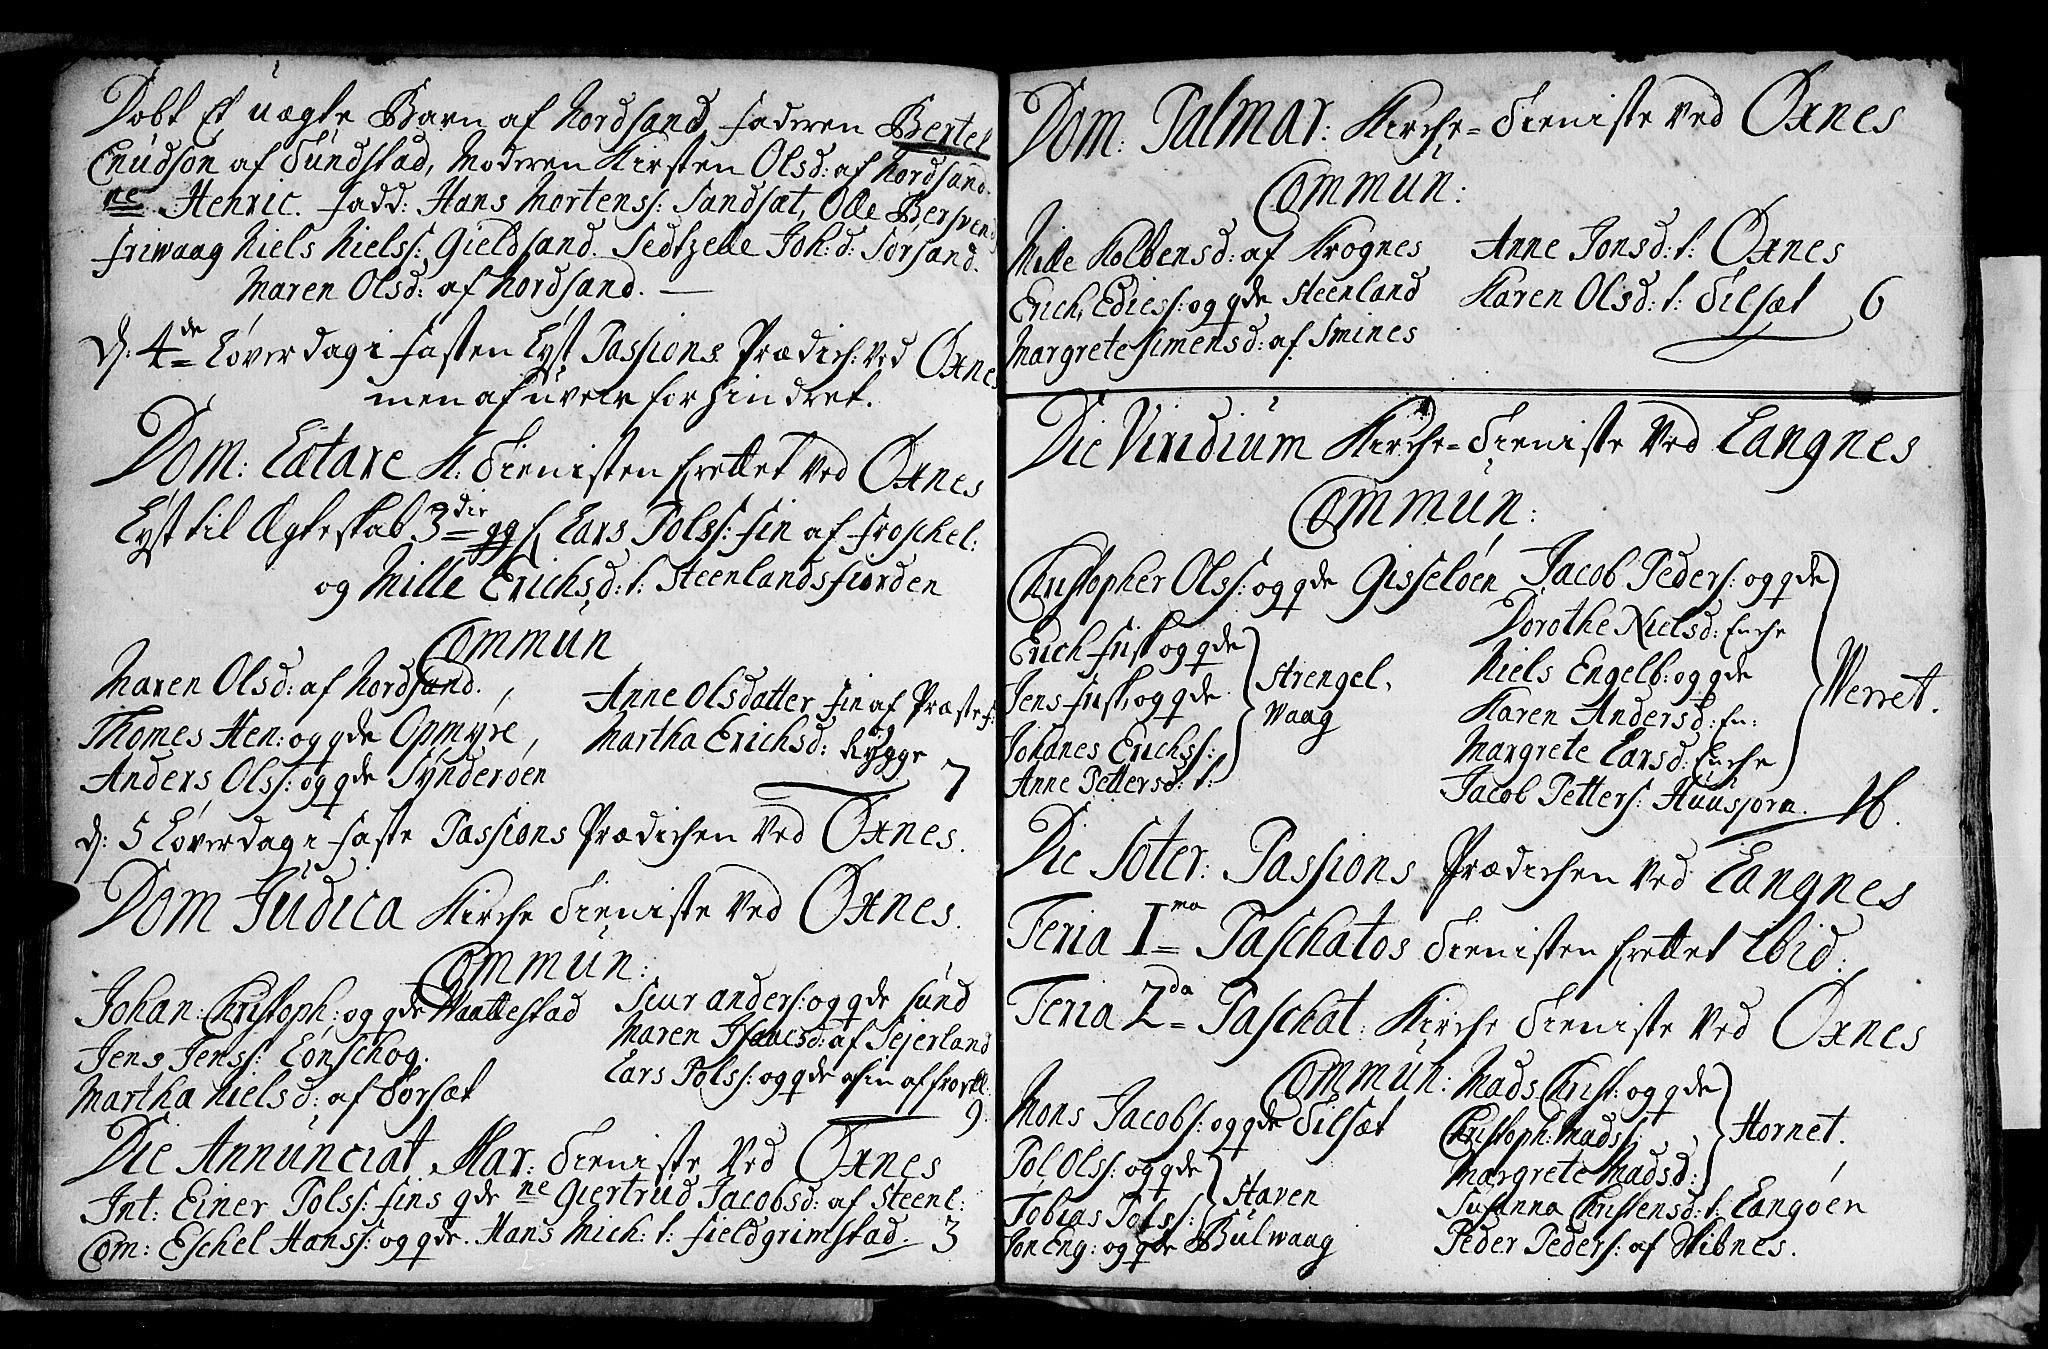 Døbt Et uægte Barn af Nordsand Faderen Bertel
Cnudsøn af Sundstad, Moderen Kirsten Olsd: af Nordsand.
ne Henric. Fadd: Hans Mortenss: Sandsæt, Olle Bersvend
Friwaag Niels Nielss: Gieldsand. Sedtzelle Joh: d: Sørsand.
Maren Olsd: af Nordsand. —
d: 4de Løverdag i Fasten Lyst Passions Prædich: Ved Oxnes
men af uveir forhindret.
Dom: Lætare K: Tienisten forettet Ved Oxnes
Lyst til Ægteskab 3die gg f Lars Polss: fin af Froschel:
og Mille Erichsd: t: Steenlandsfiorden
Commun
Maren Olsd: af Nordsand.
Thomes Hen: og qde Opmyre,
Anders Olss: og qde Synderøen
Anne Olsdatter fin af Præstef:
Martha Erichsd: Rygge 7
d: 5 Løverdag i Faste Passions Prædichen Ved Oxnes.
Dom Judica Kirche Tieniste Ved Oxnes.
Commun:
Johan: Christoph: og qde Waattestad
Jens Jenss: Lønschog.
Martha Nielsd: af Torsæt
Siur Anders: og qde Sund
Maren Isaacsd: af Sejerland
Lars Polss: og qde a fin af Froskl.
9.
Die Annunciat Mar: Tieniste Ved Oxnes
Int: Einer Polss: fins qde ne Giertrud Jacobsd: af Steenl:
Com: Eschel Hanss: og qde. Hans Mich: t: Fieldgrimstad. 3
Dom: Palmar: Kirche-Tieniste Ved Oxnes
Commun:
Mille Kolbensd: af Krognes
Erich Ediess: og qde Steenland
Margrete Simensd: af Smines
Anne Jonsd: t: Oxnes
Karen Olsd: t: Tilsæt 6
Die Viridium Kirche-Tieniste Ved Langnes
Commun:
Christopher Olss: og qde Gisseløen
Erich Frisk og qde
Jens Frisk, og qde
Johanes Erichss:
Anne Pettersd: t:
Strengel,
waag
Jacob Peders: og qde
Dorothe Nielsd: Enche
Niels Engelb: og qde
Karen Andersd: En:
Margrete Larsd: Enche
Werret.
Jacob Petters: Huusjorn. 16.
Die Soter: Passions Prædichen Ved Langnes
Feria 1ma Paschatos Tienisten forettet Ibid:
Feria 2da Paschat: Kirche Tieniste Ved Oxnes
Commun:
Mons Jacobs: og qde Tilsæt
Pol Olss: og qde
Tobias Polss:
Staven
Jon Eng: og qde Bulwaag
Mads Christ: og qde
Christoph: Madss:
Margrete Madsd:
Hornet.
Susanna Christensd: t: Langøen
Peder Peders: af Skibnes.